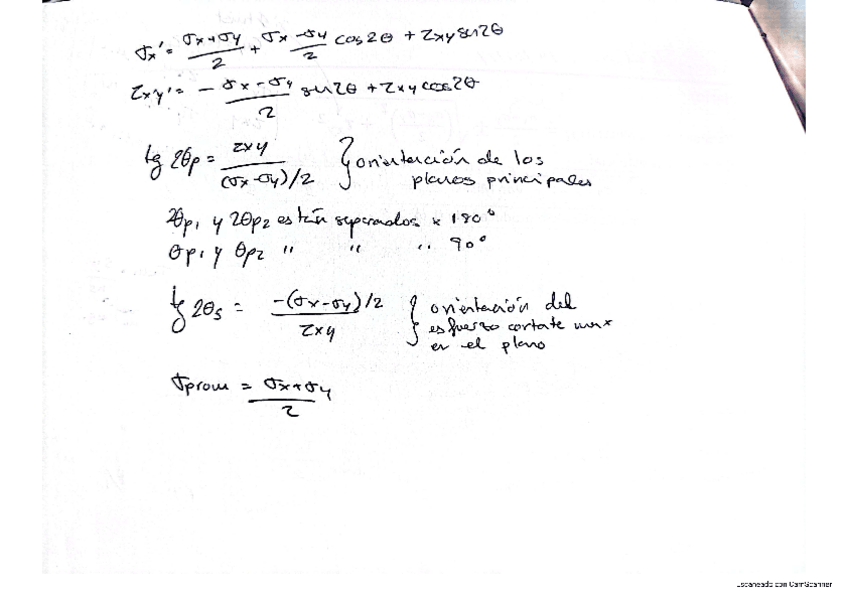 σx' = (σx+σy)/2 + (σx-σy)/2 cos2θ + τxy sen2θ
τxy' = - (σx-σy)/2 sen2θ + τxy cos2θ
tg 2θp = τxy / ((σx-σy)/2) } orientación de los
planos principales
2θp1 y 2θp2 están separados x 180°
θp1 y θp2 " " " 90°
tg 2θs = -(σx-σy)/2 / τxy { orientación del
esfuerzo cortate max
en el plano
σprom = (σx+σy)/2
Escaneado con CamScanner